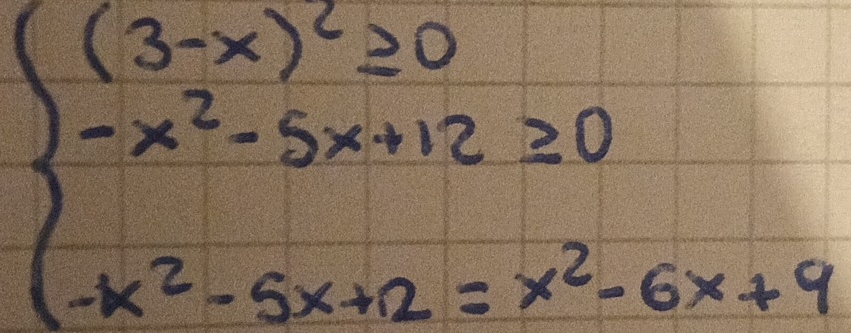 (3-x)² ≥0
-x²-5x+12 ≥0
-x²-5x+12 = x²-6x+9